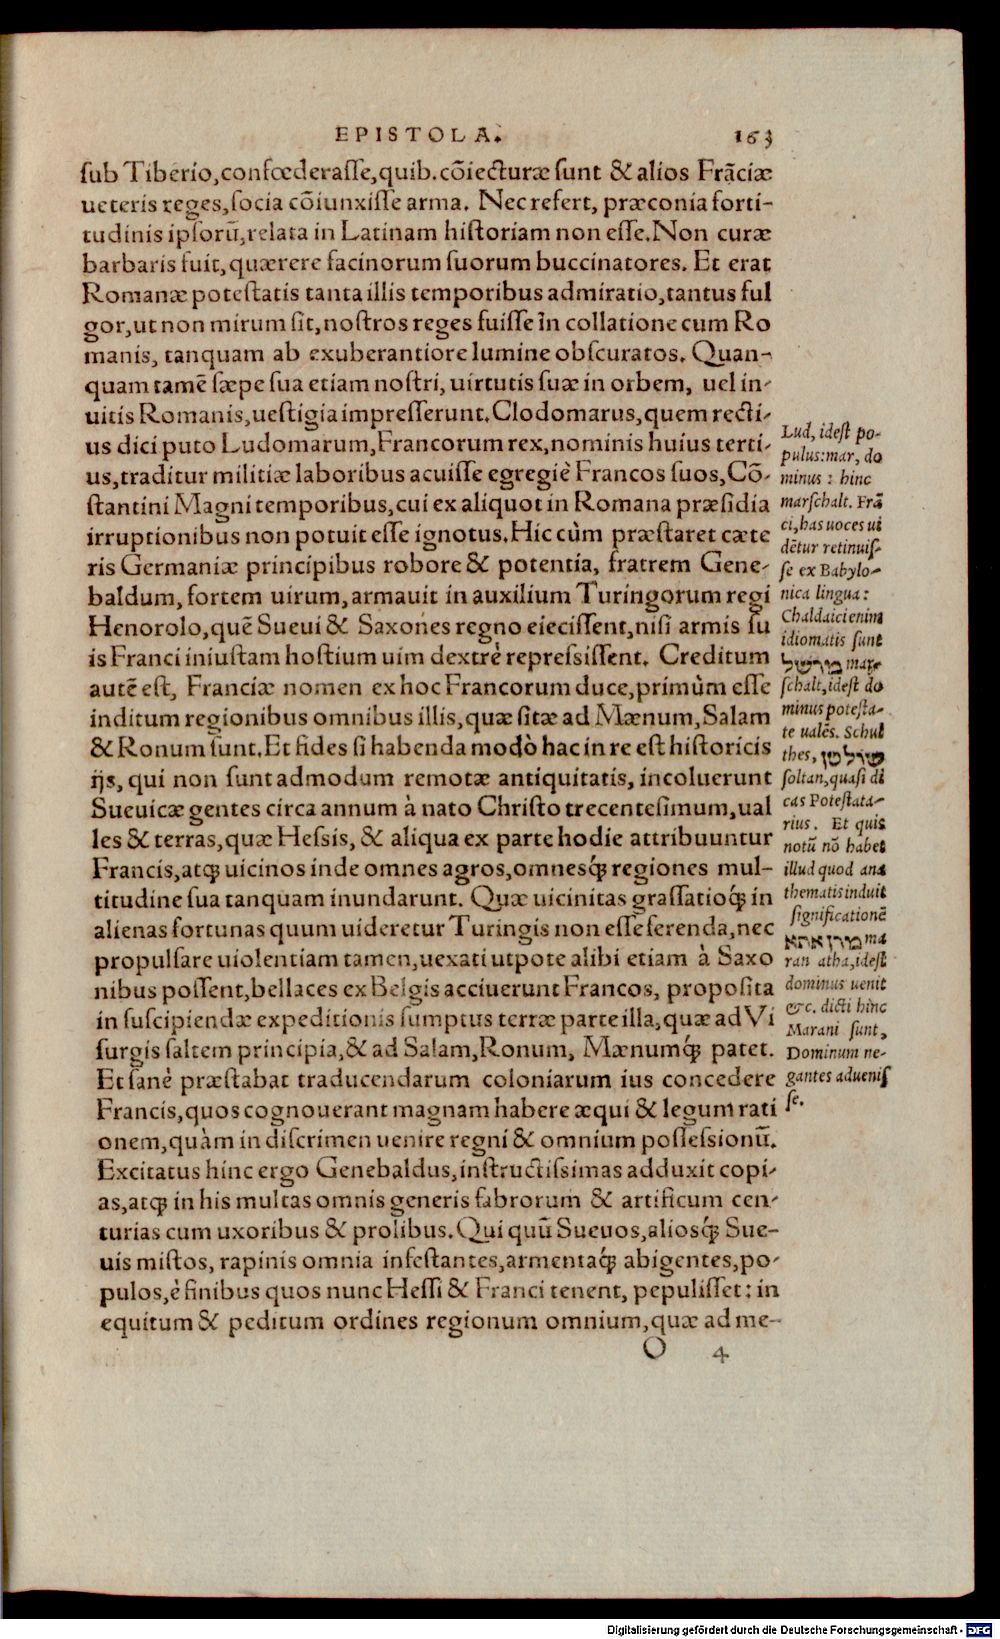 EPISTOLA. 163
ſub Tiberio,confœderaſſe,quib.cõiecturæ ſunt & alios Frãciæ
ueteris reges,ſocia cõiunxiſſe arma. Nec refert, præconia forti-
tudinis ipſorũ,relata in Latinam hiſtoriam non eſſe.Non curæ
barbaris fuit,quærere facinorum ſuorum buccinatores. Et erat
Romanæ poteſtatis tanta illis temporibus admiratio,tantus ful
gor,ut non mirum ſit,noſtros reges fuiſſe in collatione cum Ro
manis, tanquam ab exuberantiore lumine obſcuratos. Quan-
quam tamẽ ſæpe ſua etiam noſtri, uirtutis ſuæ in orbem, uel in-
uitis Romanis,ueſtigia impreſſerunt.Clodomarus,quem recti-
us dici puto Ludomarum,Francorum rex,nominis huius terti-
us,traditur militiæ laboribus acuiſſe egregiè Francos ſuos,Cõ-
ſtantini Magni temporibus,cui ex aliquot in Romana præſidia
irruptionibus non potuit eſſe ignotus.Hic cùm præſtaret cæte
ris Germaniæ principibus robore & potentia, fratrem Gene-
baldum, fortem uirum,armauit in auxilium Turingorum regi
Henorolo,quẽ Sueui & Saxones regno eieciſſent,niſi armis ſu
is Franci iniuſtam hoſtium uim dextrè repreſsiſſent. Creditum
autẽ eſt, Franciæ nomen ex hoc Francorum duce,primùm eſſe
inditum regionibus omnibus illis,quæ ſitæ ad Mænum,Salam
& Ronum ſunt.Et fides ſi habenda modò hac in re eſt hiſtoricis
ijs, qui non ſunt admodum remotæ antiquitatis, incoluerunt
Sueuicæ gentes circa annum à nato Chriſto trecenteſimum,ual
les & terras,quæ Heſsis, & aliqua ex parte hodie attribuuntur
Francis,atq́; uicinos inde omnes agros,omnesq́; regiones mul-
titudine ſua tanquam inundarunt. Quæ uicinitas graſſatioq́; in
alienas fortunas quum uideretur Turingis non eſſe ferenda,nec
propulſare uiolentiam tamen,uexati utpote alibi etiam à Saxo
nibus poſſent,bellaces ex Belgis acciuerunt Francos, propoſita
in ſuſcipiendæ expeditionis ſumptus terræ parte illa,quæ ad Vi
ſurgis ſaltem principia,& ad Salam,Ronum, Mænumq́; patet.
Et ſanè præſtabat traducendarum coloniarum ius concedere
Francis,quos cognouerant magnam habere æqui & legum rati
onem,quàm in diſcrimen uenire regni & omnium poſſeſsionũ.
Excitatus hinc ergo Genebaldus,inſtructiſsimas adduxit copi-
as,atq́; in his multas omnis generis fabrorum & artificum cen-
turias cum uxoribus & prolibus. Qui quũ Sueuos,aliosq́; Sue-
uis miſtos, rapinis omnia infeſtantes,armentaq́; abigentes,po-
pulos,è finibus quos nunc Heſſi & Franci tenent, pepuliſſet: in
equitum & peditum ordines regionum omnium,quæ ad me-
O 4
Lud, ideſt po-
pulus:mar, do
minus : hinc
marſchalt. Frã
ci,has uoces ui
dẽtur retinuiſ-
ſe ex Babylo-
nica lingua:
Chaldaici enim
idiomatis ſunt
מרשל mar-
ſchalt,ideſt do
minus poteſta-
te ualẽs. Schul
thes, שולטן
ſoltan,quaſi di
cas Poteſtata-
rius. Et quis
notũ nõ habet
illud quod ana
thematis induit
ſignificationẽ
מרן אתא ma
ran atha,ideſt
dominus uenit
&c. dicti hinc
Marani ſunt,
Dominum ne-
gantes adueniſ
ſe.
Digitalisierung gefördert durch die Deutsche Forschungsgemeinschaft - DFG